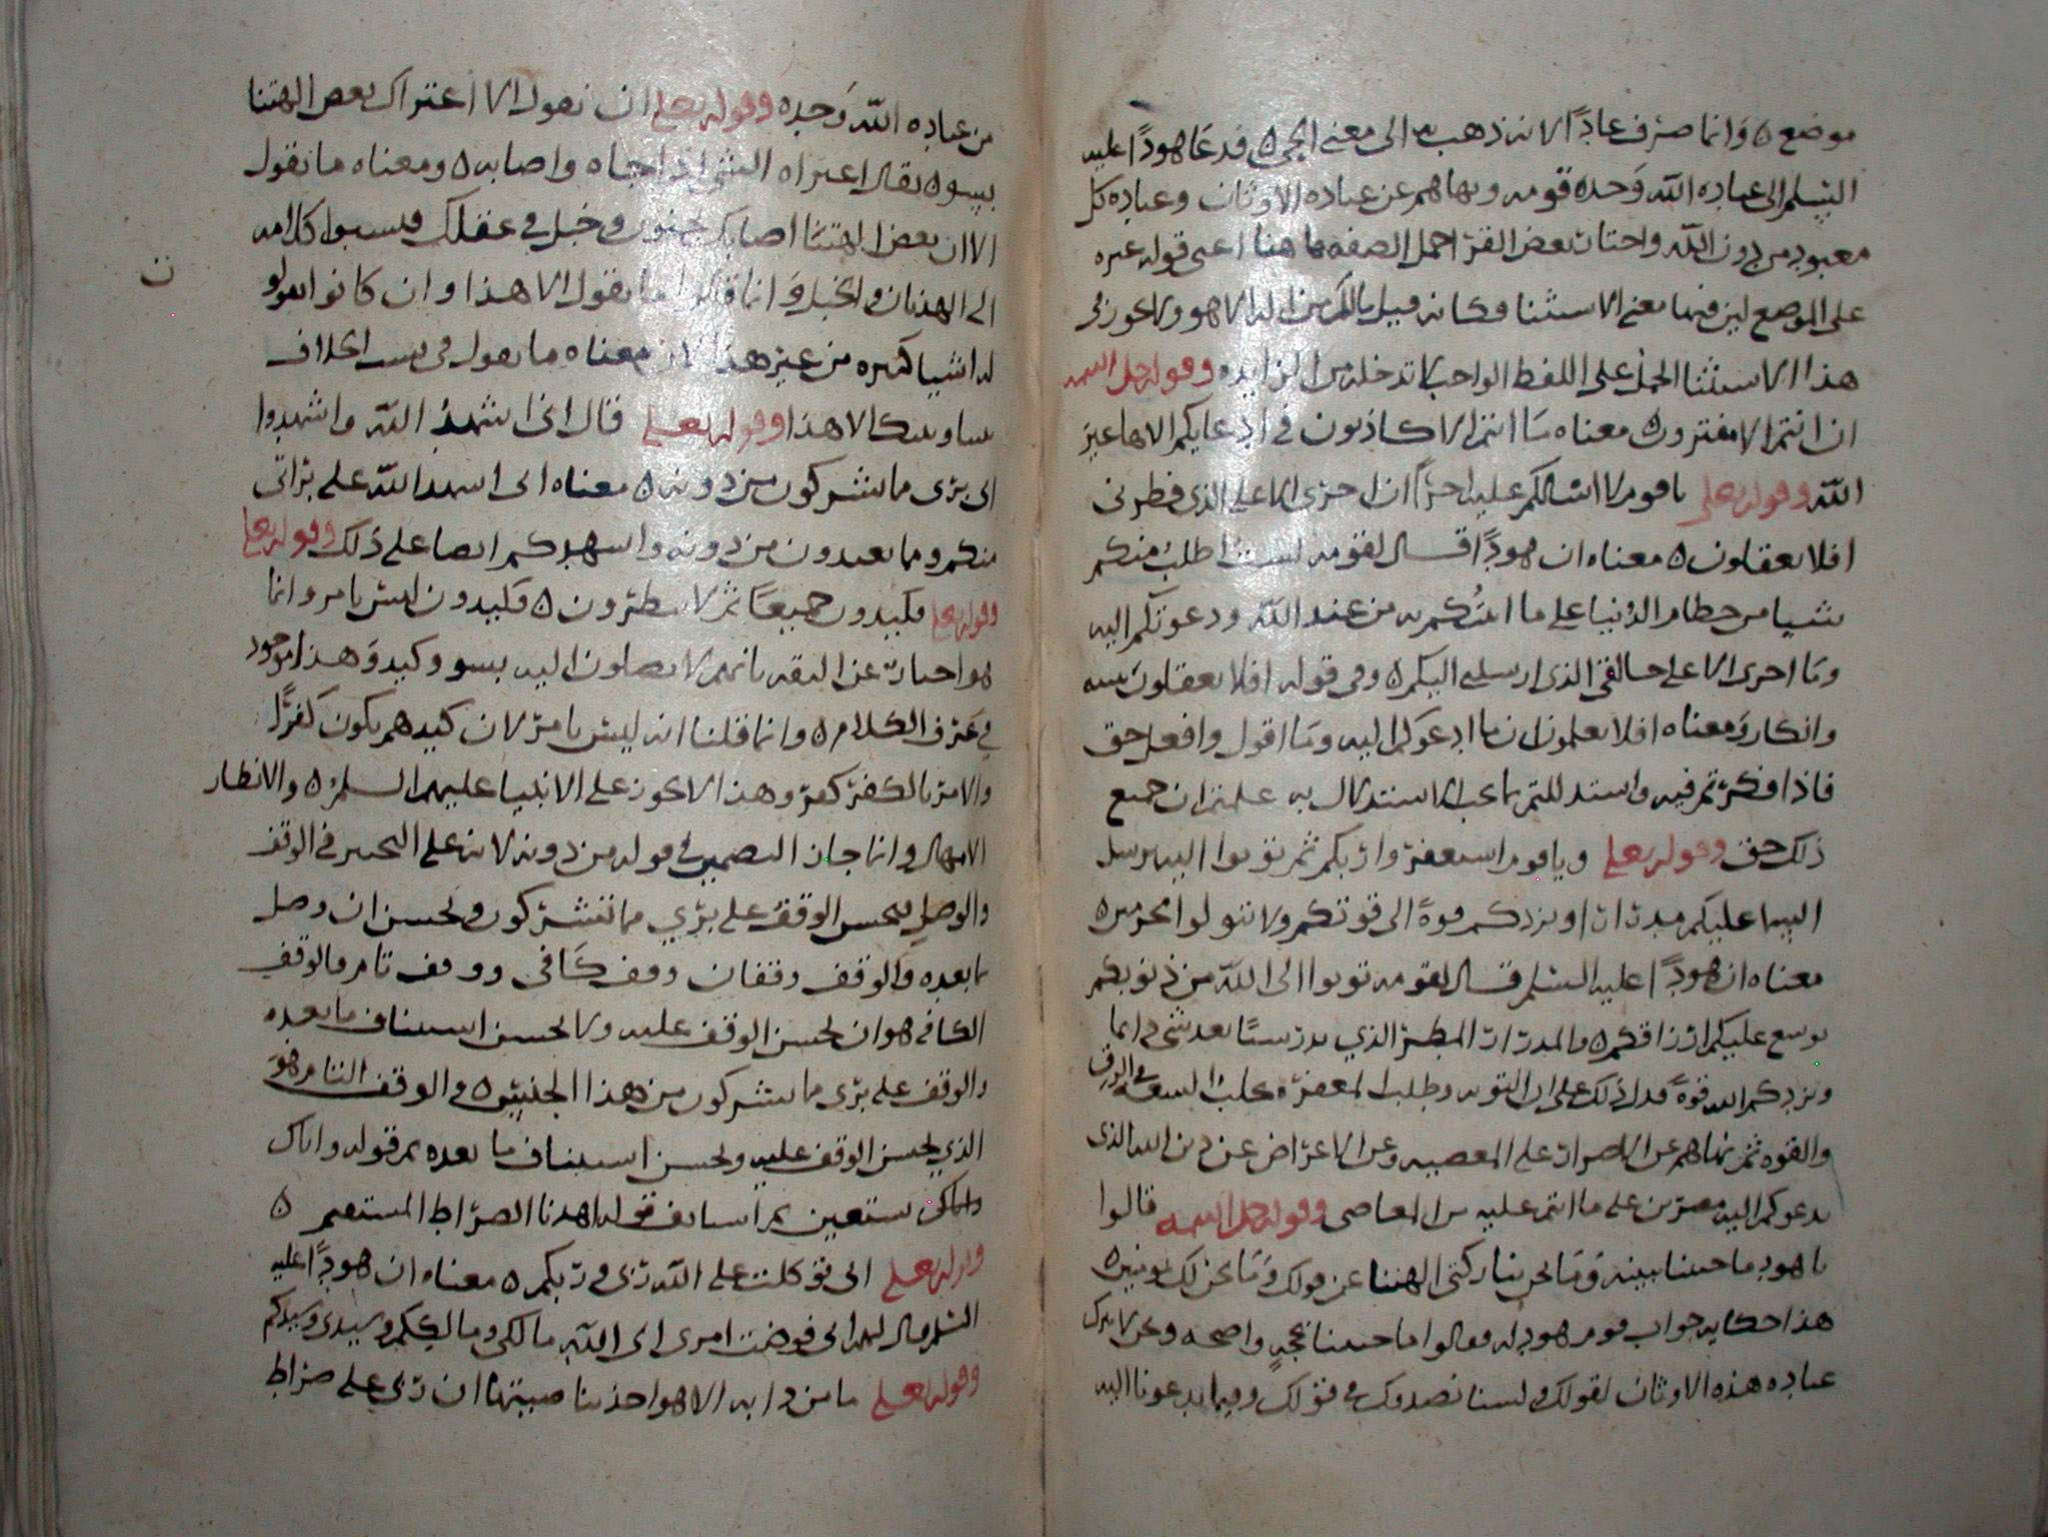 موضع ٥ وانما صرف عادًا لانه ذهب به الى معنى الحي ٥ فدعا هودًا عليه
السلم الى عباده الله وحده قومه ونهاهم عن عباده الاوثان وعباده كل
معبود من دون الله واختار بعض القرا حمل الصفه هاهنا اعنى قوله غيره
على الموضع لين فيها معنى الاستثنا فكانه قيل مالكم من اله الا هو ولا يجوز فى
هذا الاستثنا الحمل على اللفظ الواحب لا تدخله من الزايده وقوله جل اسمه
ان انتم الا مفترون ٥ معناه ما انتم الا كاذبون فى ادعايكم الاها غير
الله وقوله تعلى ياقوم لا اسالكم عليه اجرًا ان اجرى الا على الذى فطرنى
افلا تعقلون ٥ معناه ان هودًا قال لقومه لست اطلب منكم
شيا من حطام الدنيا على ما اتيتكم به من عند الله ودعوتكم اليه
وما اجرى الا على خالقى الذى ارسلنى اليكم ٥ وفى قوله افلا تعقلون تنبيه
وانكار ومعناه افلا تعلمون ان ما ادعوكم اليه وما اقول وافعل حق
فاذا فكرتم فيه واستدللتم بما يجب الاستدلال به علمتم ان جميع
ذلك حق وقوله تعلى وياقوم استغفروا ربكم ثم توبوا اليه يرسل
السما عليكم مدرارا ويزدكم قوة الى قوتكم ولا تتولوا مجرمين ٥
معناه ان هودًا عليه السلم قال لقومه توبوا الى الله من ذنوبكم
يوسع عليكم ارزاقكم ٥ والمدرار المطر الذي يدر سيا بعد شى دايما
ويزدكم الله قوة فدل ذلك على ان التوبه وطلب المغفرة يجلب السعه فى الرزق
والقوه ثم نهاهم عن الاصرار على المعصيه وعن الاعراض عن دين الله الذى
يدعوكم اليه مصرين على ما انتم عليه من المعاصى وقوله جل اسمه قالوا
يا هود ما جيتنا ببينه وما نحن بتاركى الهتنا عن قولك وما نحن لك بمومنين ٥
هذا حكايه جواب قوم هود له فقالوا ما جيتنا بحجة واضحه ونحن لا نترك
عباده هذه الاوثان لقولك ولسنا نصدقك فى قولك وفيما تدعونا اليه
من عباده الله وحده وقوله تعلى ان نقول الا اعتراك بعض الهتنا
بسو ٥ يقال اعتراه الشي اذا جاه واصابه ٥ ومعناه ما نقول
الا ان بعض الهتنا اصابك بجنون وخبل فى عقلك فنسبوا كلامه
الى الهذيان والخبل وانما قالوا ما نقول الا هذا وان كانوا يقولو
له اشيا كثيره من غير هذا لان معناه ما نقول فى سبب الخلاف
بيننا وبينك الا هذا وقوله تعلى قال انى اشهد الله واشهدوا
انى برى مما تشركون من دونه ٥ معناه انى اشهد الله على براتى
منكم ومما تعبدون من دونه واشهدكم ايضا على ذلك وقوله تعلى
وقوله تعلى فكيدون جميعًا ثم لا تنظرون ٥ فكيدون ليس بامر وانما
هو اخبار عن الثقه بانهم لا يصلون اليه بسو وكيد وهذا موجود
في عرف الكلام ٥ وانما قلنا انه ليس بامر لان كيدهم يكون كفرًا
والامر بالكفر كفر وهذا لا يجوز على الانبيا عليهم السلم ٥ والانظار
الامهال وانما جاز التضمين فى قوله من دونه لانه على التخيير فى الوقف
والوصل فيحسن الوقف على بري مما تشركون ويحسن ان وصل
بما بعده والوقف وقفان وقف كافى ووقف تام فالوقف
الكافى هو ان يحسن الوقف عليه ولا يحسن استيناف ما بعده
والوقف على برى مما تشركون من هذا الجنس ٥ والوقف التام هو
الذي يحسن الوقف عليه ويحسن استيناف ما بعده نحو قوله واياك
واياك نستعين ثم استانف قوله اهدنا الصراط المستقيم ٥
وقوله تعلى انى توكلت على الله ربى وربكم ٥ معناه ان هودًا عليه
السلم قال لهم انى فوضت امرى الى الله مالكى ومالككم وسيدى وسيدكم
وقوله تعلى ما من دابه الا هو اخذ بناصيتها ان ربى على صراط
ن